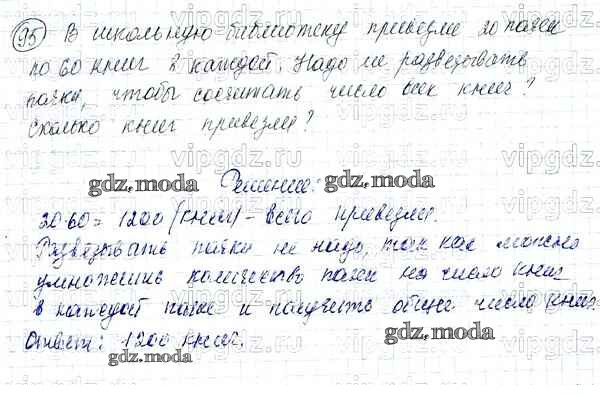 95 В школьную библиотеку привезли 20 пачек
по 60 книг в каждой. Надо ли развязывать
пачки, чтобы сосчитать число всех книг?
Сколько книг привезли?
Решение:
20·60 = 1200 (книг) - всего привезли.
Развязывать пачки не надо, так как можно
умножить количество пачек на число книг
в каждой пачке и получить общее число книг.
Ответ: 1200 книг.
gdz.moda
gdz.moda
gdz.moda
gdz.moda
vipgdz.ru